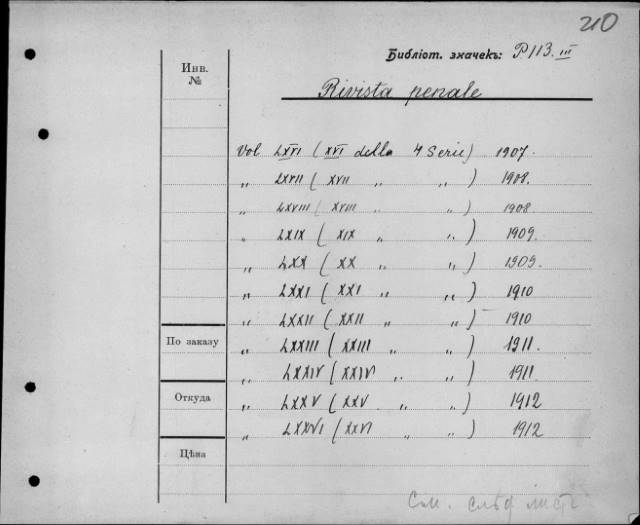 210
Библіот. значекъ: P 113. III
Инв.
№
Rivista penale
Vol LXVI (XVI della 4 Serie) 1907.
„ LXVII (XVII „ „ ) 1908.
„ LXVIII (XVIII „ „ ) 1908
„ LXIX (XIX „ „ ) 1909.
„ LXX (XX „ „ ) 1909.
„ LXXI (XXI „ „ ) 1910
„ LXXII (XXII „ „ ) 1910
По заказу
„ LXXIII (XXIII „ „ ) 1911.
„ LXXIV (XXIV „ „ ) 1911.
Откуда
„ LXXV (XXV „ „ ) 1912
„ LXXVI (XXVI „ „ ) 1912
Цѣна
См. слѣд листъ